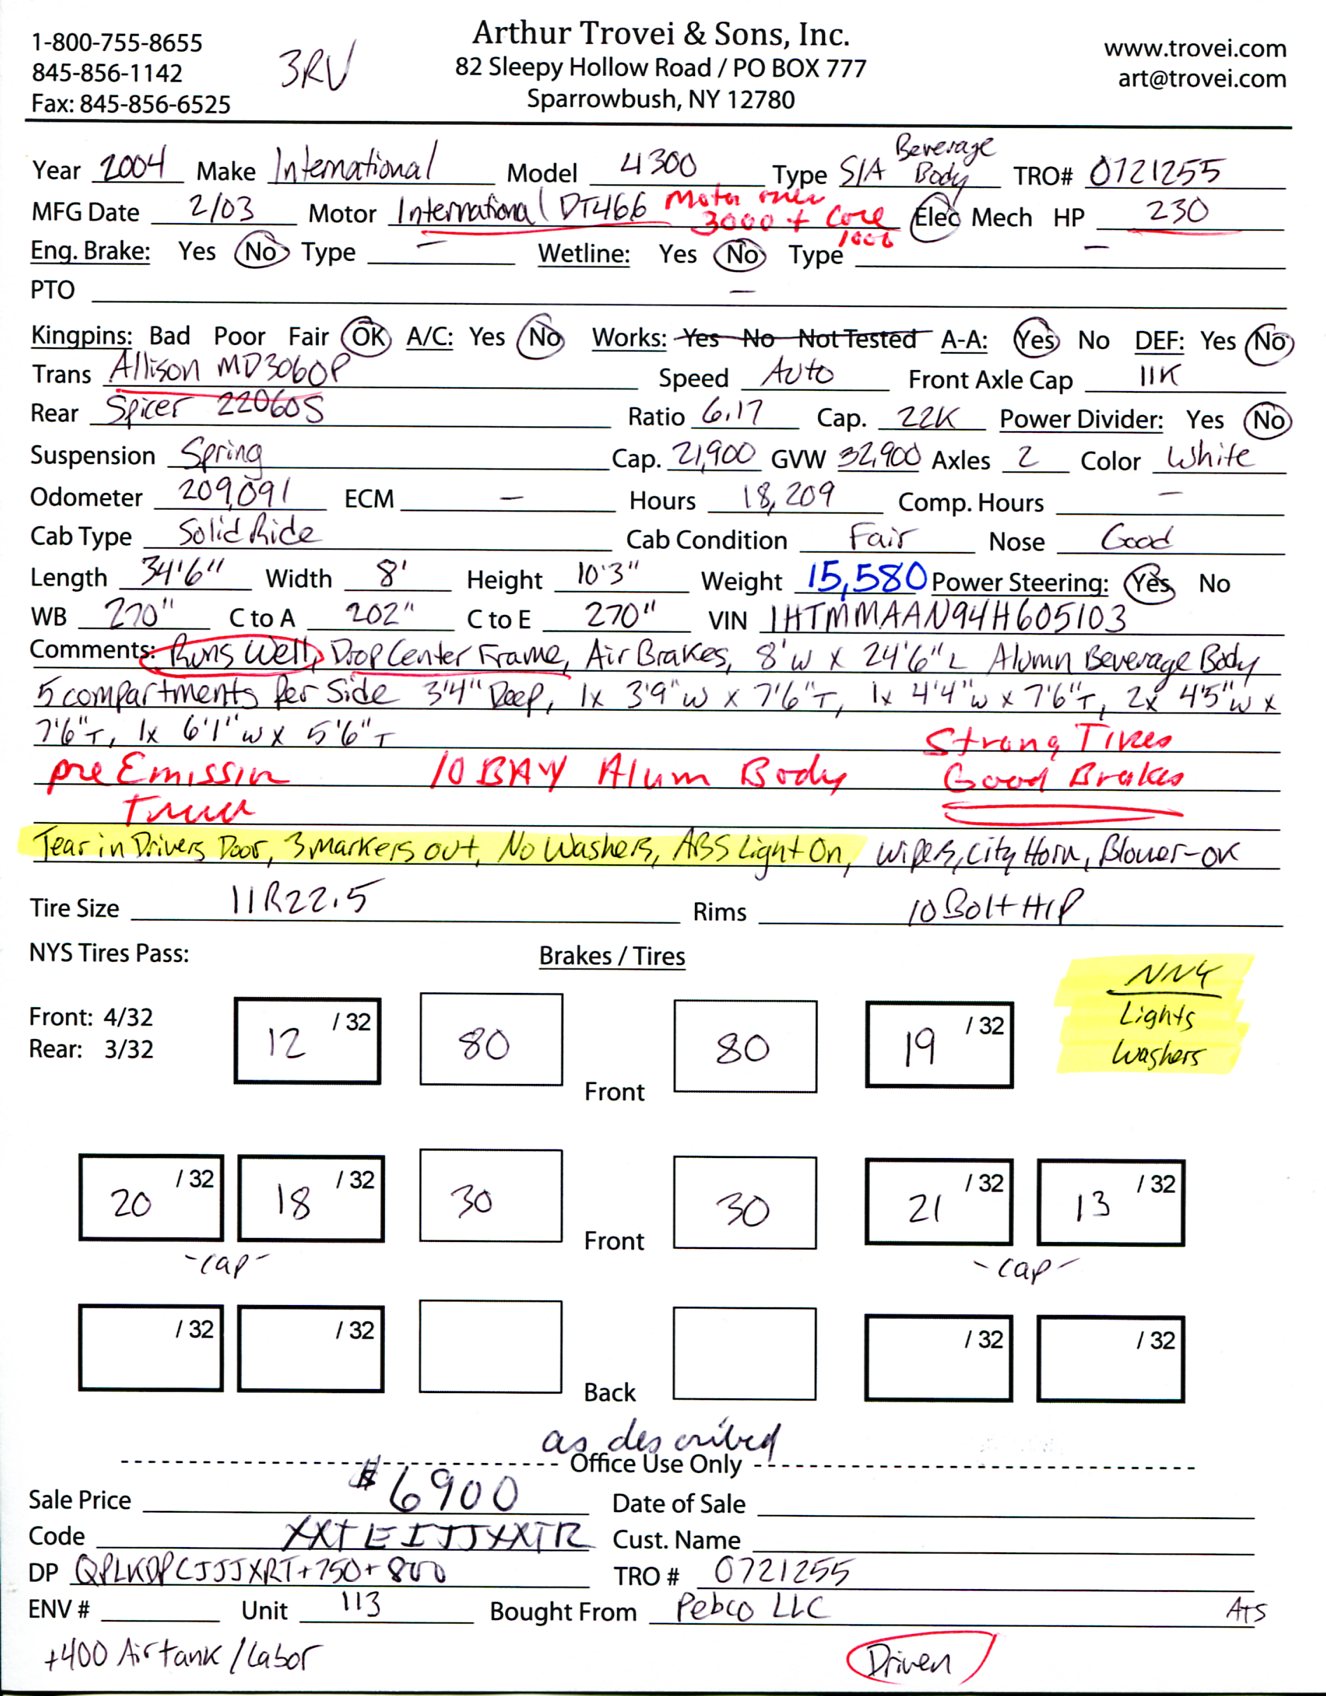 Arthur Trovei & Sons, Inc.
1-800-755-8655 82 Sleepy Hollow Road / PO BOX 777 www.trovei.com
845-856-1142 3RV Sparrowbush, NY 12780 art@trovei.com
Fax: 845-856-6525
Year 2004 Make International Model 4300 Type S/A Beverage Body TRO# 0721255
MFG Date 2/03 Motor International DT466 Motor over 3000 + Core 1000 Elec Mech HP 230
Eng. Brake: Yes No Type — Wetline: Yes No Type —
PTO —
Kingpins: Bad Poor Fair OK A/C: Yes No Works: Yes No Not Tested A-A: Yes No DEF: Yes No
Trans Allison MD3060P Speed Auto Front Axle Cap 11K
Rear Spicer 22060S Ratio 6.17 Cap. 22K Power Divider: Yes No
Suspension Spring Cap. 21,900 GVW 32,900 Axles 2 Color White
Odometer 209,091 ECM — Hours 18,209 Comp. Hours —
Cab Type Solid Ride Cab Condition Fair Nose Good
Length 34'6" Width 8' Height 10'3" Weight 15,580 Power Steering: Yes No
WB 270" C to A 202" C to E 270" VIN 1HTMMAAN94H605103
Comments: Runs Well, Drop Center Frame, Air Brakes, 8'W x 24'6"L Alumn Beverage Body
5 compartments per Side 3'4" Deep, 1x 3'9"W x 7'6"T, 1x 4'4"W x 7'6"T, 2x 4'5"W x
7'6"T, 1x 6'1"W x 5'6"T Strong Tires
pre Emission 10 BAY Alum Body Good Brakes
Tear in Drivers Door, 3 markers out, No Washers, ABS Light On, Wipers, City Horn, Blower-OK
Tire Size 11R22.5 Rims 10 Bolt H/P
NYS Tires Pass: Brakes / Tires NNY
Front: 4/32 Lights
Rear: 3/32 Washers
12 /32 80 Front 80 19 /32
20 /32 18 /32 30 Front 30 21 /32 13 /32
-Cap- -Cap-
/32 /32 Back /32 /32
as described
Office Use Only
Sale Price $6900 Date of Sale
Code XXTEIJJXXTR Cust. Name
DP QPLKDPCJJJXRT+750+800 TRO # 0721255
ENV # Unit 113 Bought From Pebco LLC AtS
+400 Air tank/Labor Driven